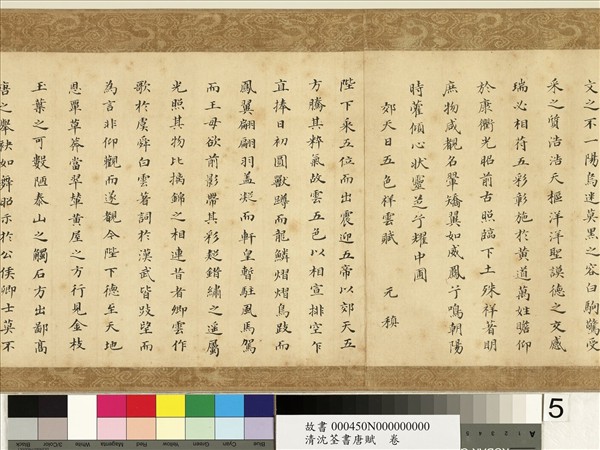 文之不一陽烏迷莫黑之容白駒驚受
采之質浩浩天樞洋洋聖謨德之交感
瑞必相符五彩彰施於黃道萬姓瞻仰
於康衢光昭前古照臨下土殊祥昔明
庶物咸覩名翬矯翼如威鳳兮鳴朝陽
時藿傾心狀靈芝兮耀中圃
郊天日五色祥雲賦 元稹
陛下乘五位而出震迎五帝以郊天五
方騰其粹氣故雲五色以相宣排空乍
直捧日初圓獸蹲而龍鱗熠熠鳥跂而
鳳翼翩翩羽蓋凝而軒皇暫駐風馬駕
而王母欲前影帶其彩疑錯繡之遙屬
光照其物比摛錦之相連昔者卿雲作
歌於虞舜白雲著詞於漢武皆跂望而
為言非仰觀而遂覩今陛下德至天地
恩單草莽當翠輦黃屋之方行見金枝
玉葉之可數陋泰山之觸石方出鄙高
唐之舉袂如舞昭示於公侯卿士莫不
Blue
Cyan
Green
Yellow
Red
Magenta
White
3/Color
Black
故書 000450N000000000
清沈荃書唐賦 卷
A
5